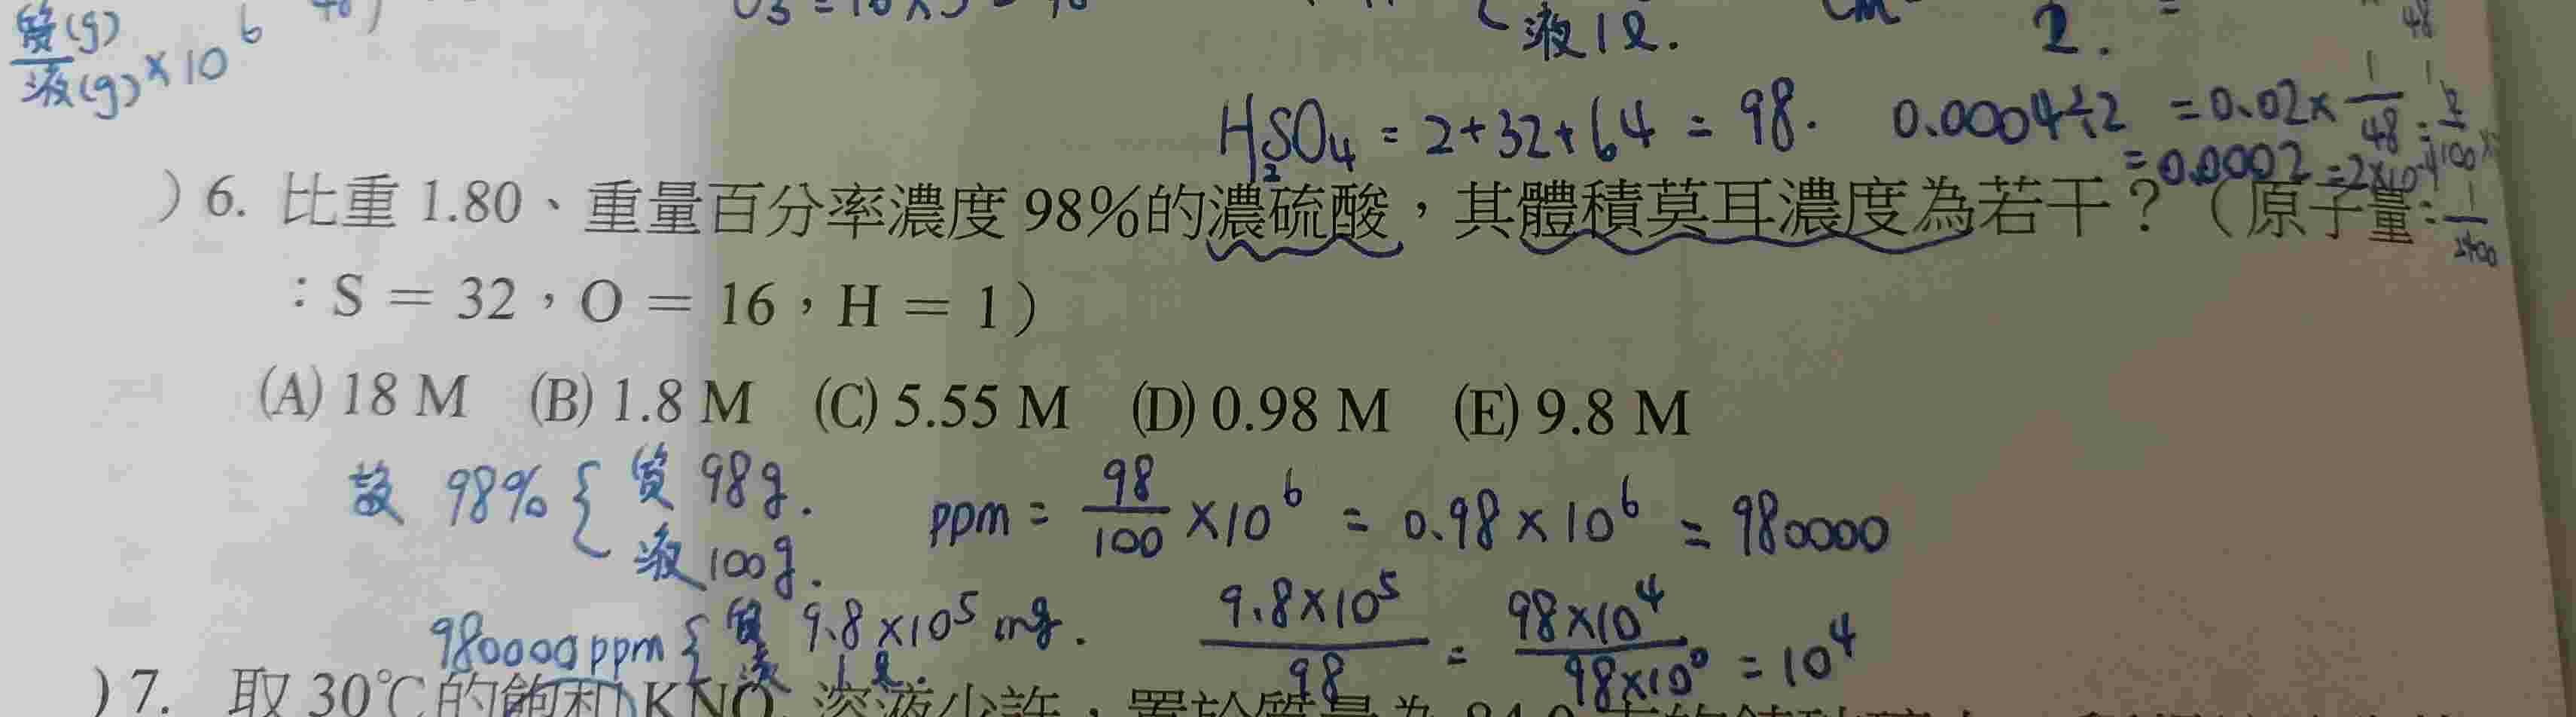 質(g)
液(g) × 10^6
液 1ℓ.
2.
H₂SO₄ = 2+32+64 = 98. 0.0004÷2 = 0.02× 1/48
= 0.0002 = 2×10^-4
) 6. 比重 1.80、重量百分率濃度 98%的濃硫酸，其體積莫耳濃度為若干？（原子量：
：S = 32，O = 16，H = 1）
(A) 18 M (B) 1.8 M (C) 5.55 M (D) 0.98 M (E) 9.8 M
故 98% { 質 98g. ppm = 98/100 ×10^6 = 0.98×10^6 = 980000
液 100g.
980000ppm { 質 9.8×10^5 mg. 9.8×10^5/98 = 98×10^4/98×10^0 = 10^4
液 1ℓ.
) 7. 取 30℃的飽和 KNO 溶液少許，置於質量為